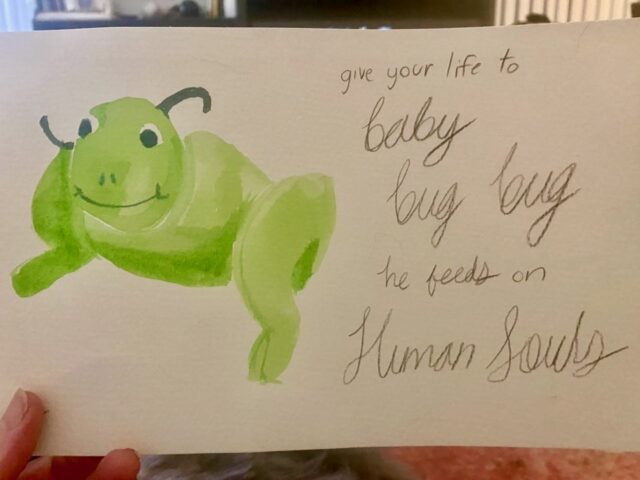 give your life to
baby
bug bug
he feeds on
Human Souls